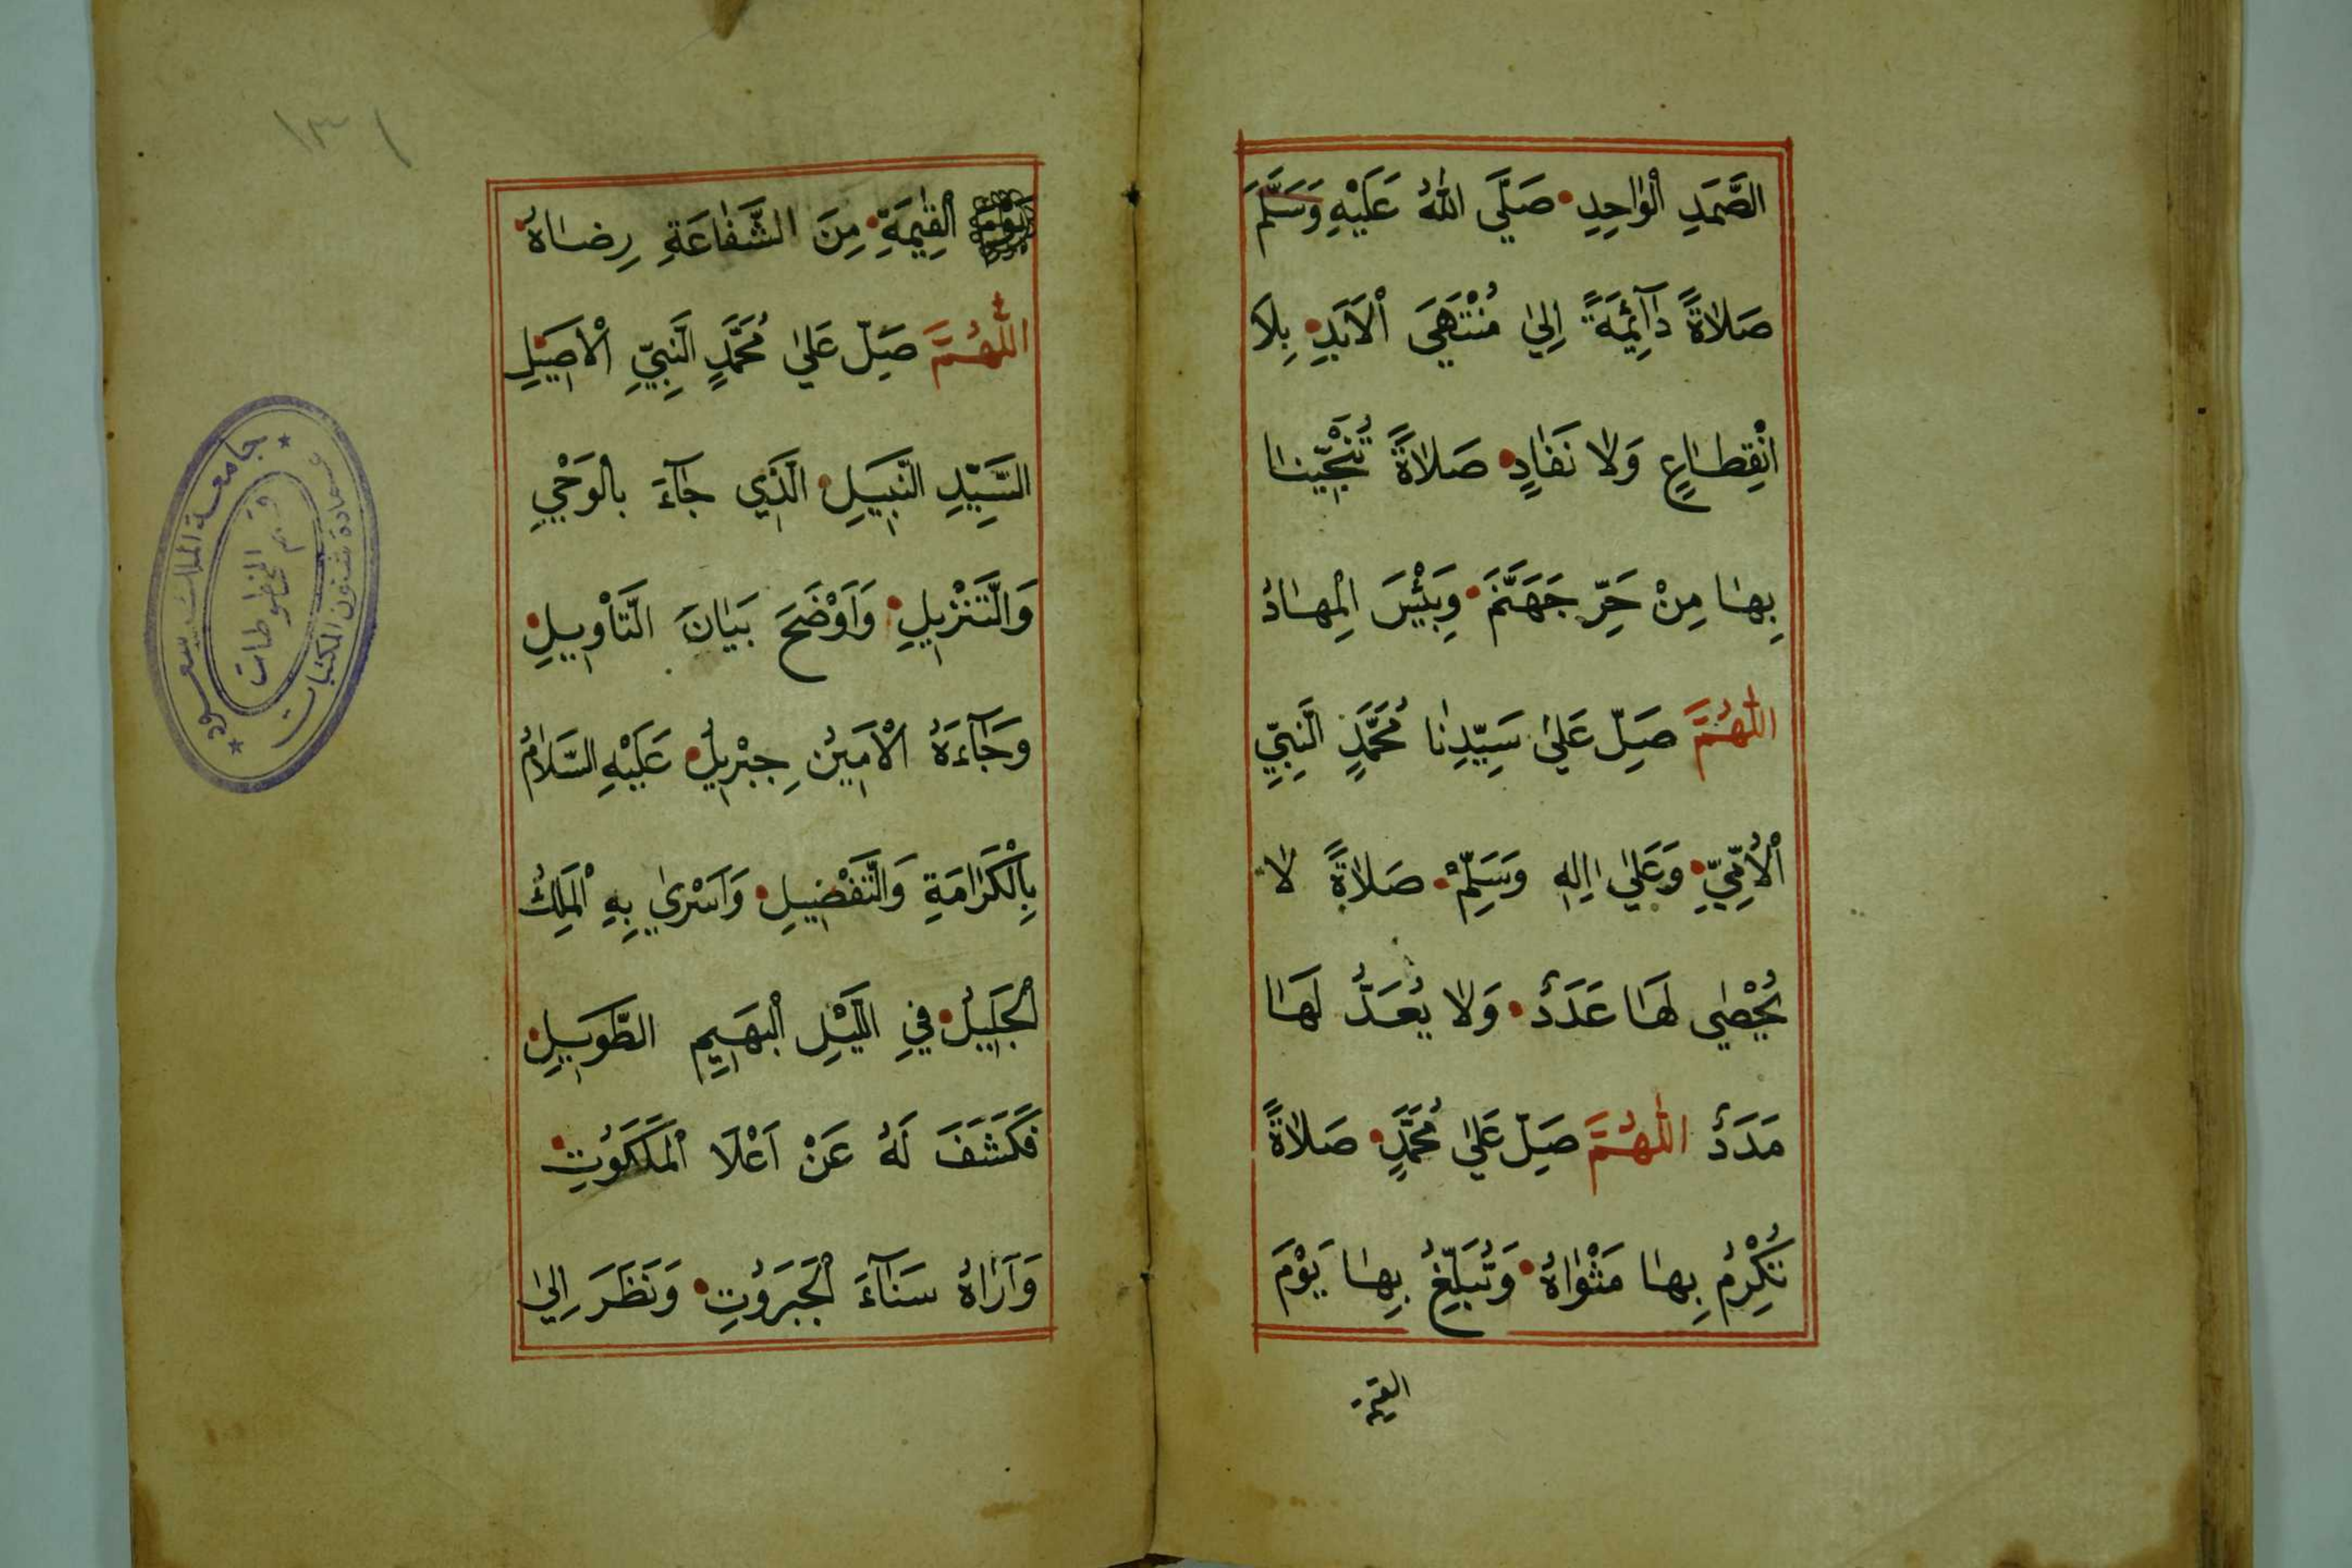 الصَّمَدِ الْوَاحِدِ صَلَّي اللهُ عَلَيْهِ وَسَلَّمَ
صَلَاةً دَآئِمَةً اِلي مُنْتَهَيَ الْاَبَدِ بِلَا
انْقِطَاعٍ وَلَا نَفَادٍ صَلَاةً تُنَجِّينَا
بِهَا مِنْ حَرِّ جَهَنَّمَ وَبِئْسَ الْمِهَادُ
اللّٰهُمَّ صَلِّ عَلي سَيِّدِنَا مُحَمَّدٍ النَّبِيِّ
الْاُمِّيِّ وَعَلي اٰلِهِ وَسَلِّمْ صَلَاةً لَا
يُحْصي لَهَا عَدَدٌ وَلَا يُعَدُّ لَهَا
مَدَدٌ اللّٰهُمَّ صَلِّ عَلي مُحَمَّدٍ صَلَاةً
تُكْرِمُ بِهَا مَثْوَاهُ وَتُبَلِّغُ بِهَا يَوْمَ
القيمة
١٣١
الْقِيٰمَةِ مِنَ الشَّفَاعَةِ رِضَاهُ
اللّٰهُمَّ صَلِّ عَلي مُحَمَّدٍ النَّبِيِّ الْاَصِيلِ
السَّيِّدِ النَّبِيلِ الَّذِي جَآءَ بِالْوَحْيِ
وَالتَّنْزِيلِ وَاَوْضَحَ بَيَانَ التَّأْوِيلِ
وَجَآءَهُ الْاَمِينُ جِبْرِيلُ عَلَيْهِ السَّلَامُ
بِالْكَرَامَةِ وَالتَّفْضِيلِ وَاَسْرٰي بِهِ الْمَلِكُ
الْجَلِيلُ فِي اللَّيْلِ الْبَهِيمِ الطَّوِيلِ
فَكَشَفَ لَهُ عَنْ اَعْلَا الْمَلَكُوتِ
وَاَرَاهُ سَنَآءَ الْجَبَرُوتِ وَنَظَرَ اِلي
جامعة الملك سعود
عمادة شئون المكتبات
قسم المخطوطات